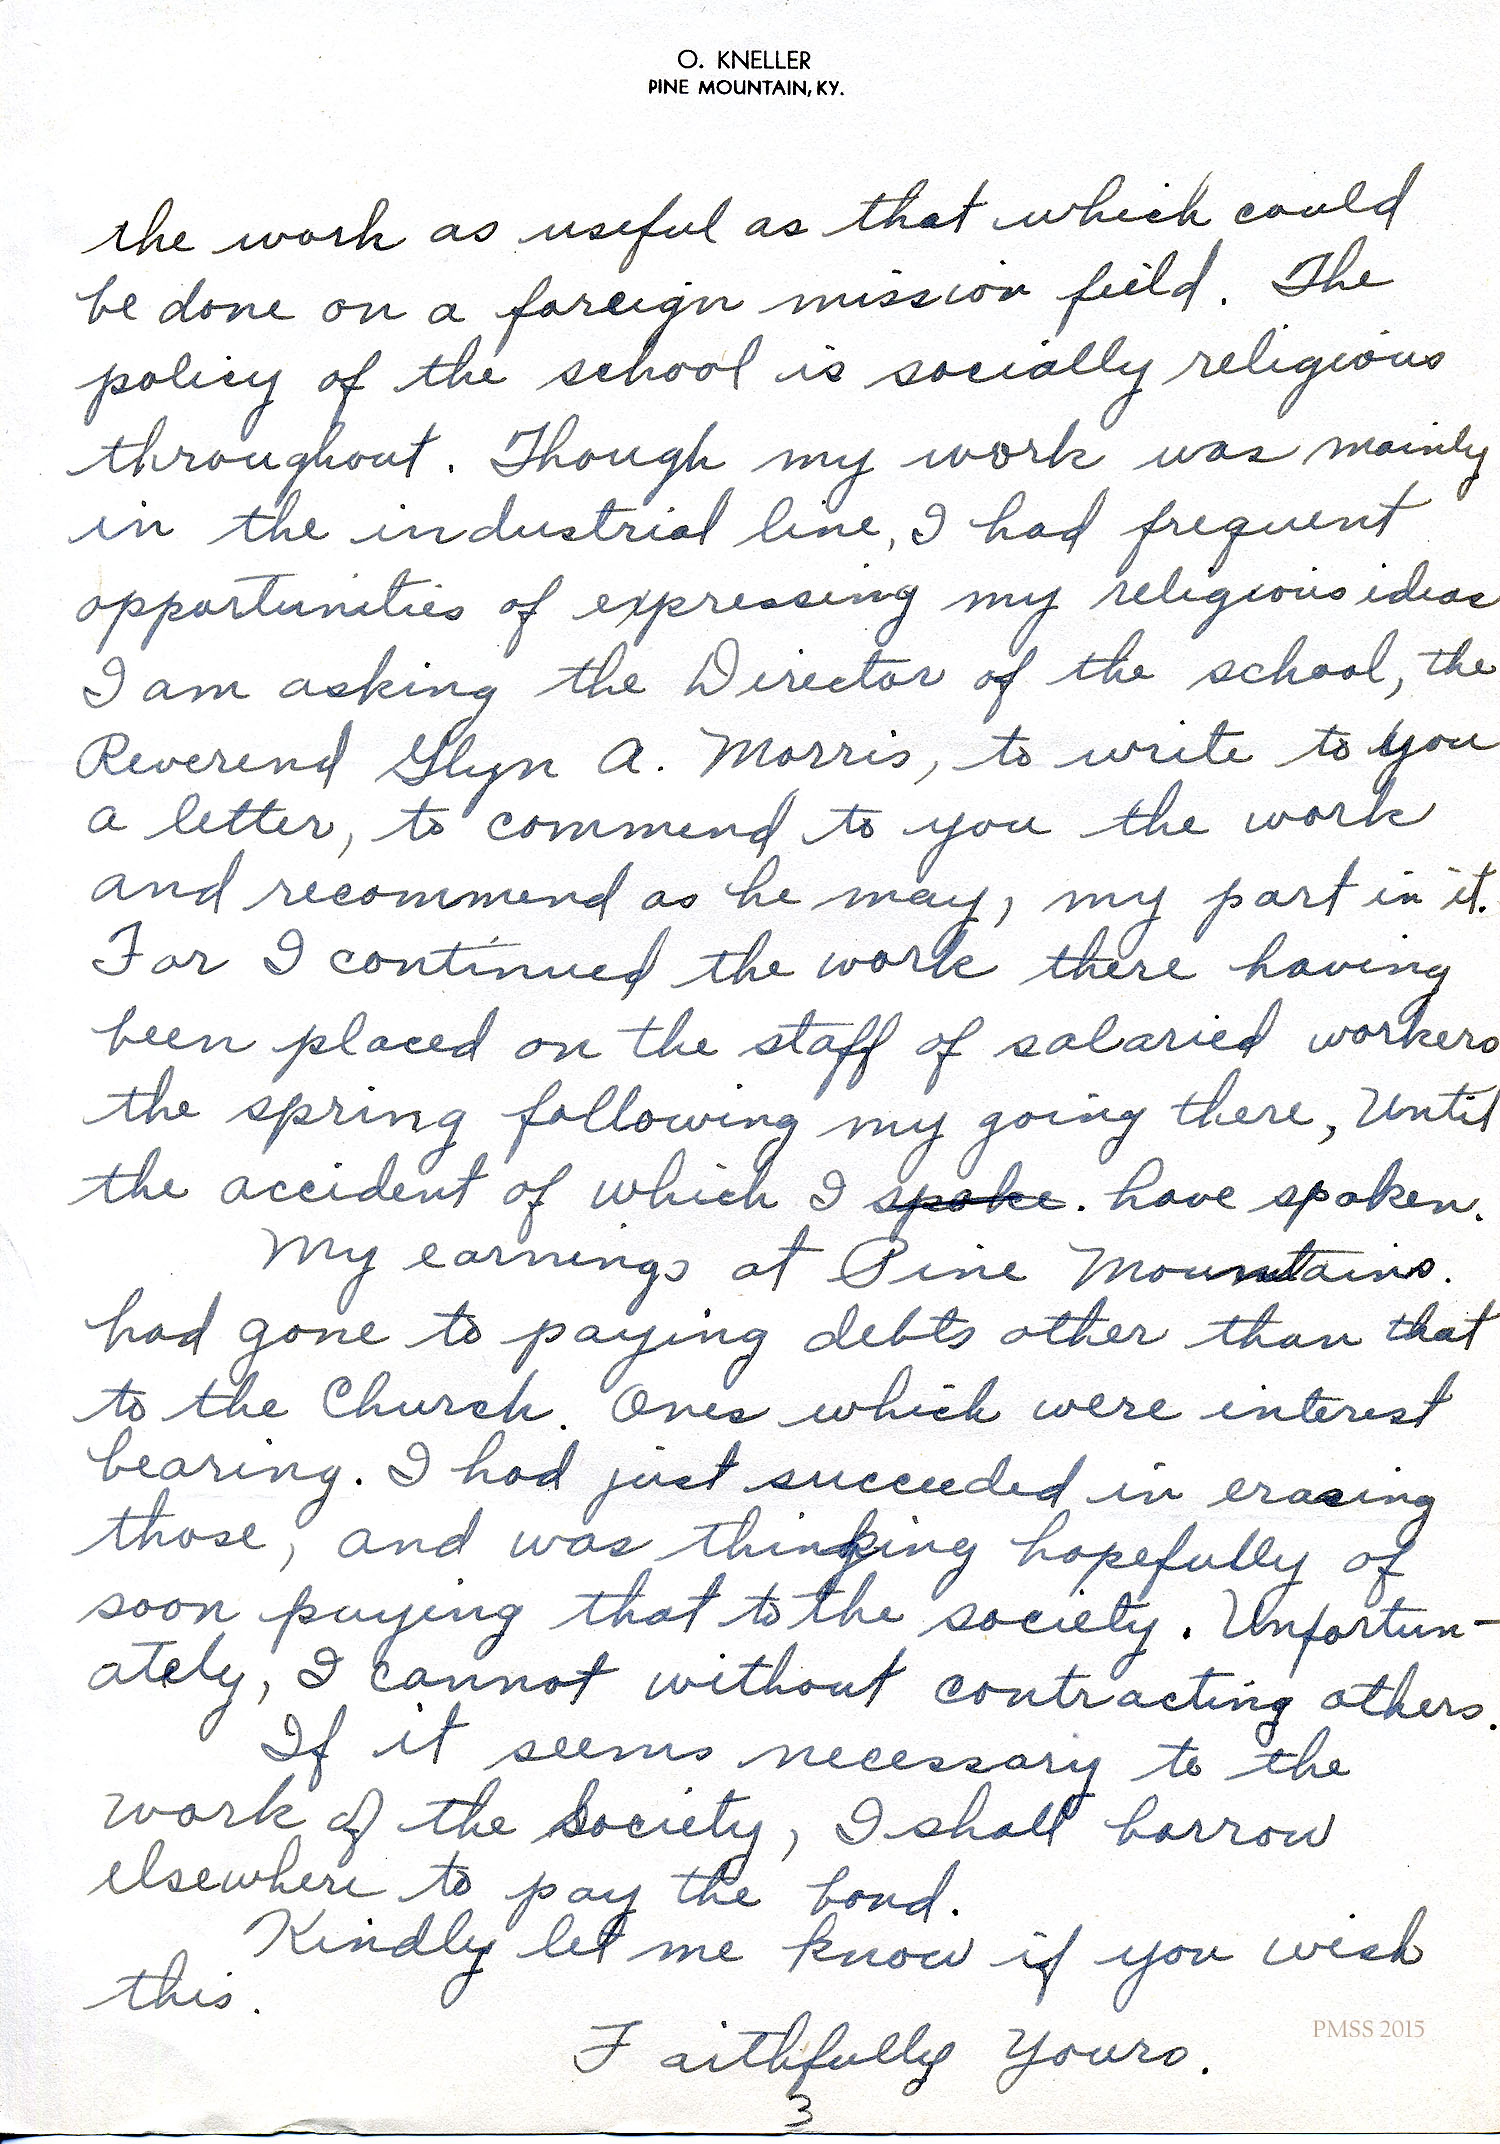 O. KNELLER
PINE MOUNTAIN, KY.
the work as useful as that which could
be done on a foreign mission field. The
policy of the school is socially religious
throughout. Though my work was mainly
in the industrial line, I had frequent
opportunities of expressing my religious ideas
I am asking the Director of the school, the
Reverend Glyn A. Morris, to write to you
a letter, to commend to you the work
and recommend as he may, my part in it.
For I continued the work there having
been placed on the staff of salaried workers
the spring following my going there, Until
the accident of which I spoke. have spoken.
My earnings at Pine Mountains.
had gone to paying debts other than that
to the Church. Ones which were interest
bearing. I had just succeeded in erasing
those, and was thinking hopefully of
soon paying that to the society. Unfortun-
ately, I cannot without contracting others.
If it seems necessary to the
work of the Society, I shall borrow
elsewhere to pay the bond.
Kindly let me know if you wish
this.
Faithfully Yours.
3
PMSS 2015